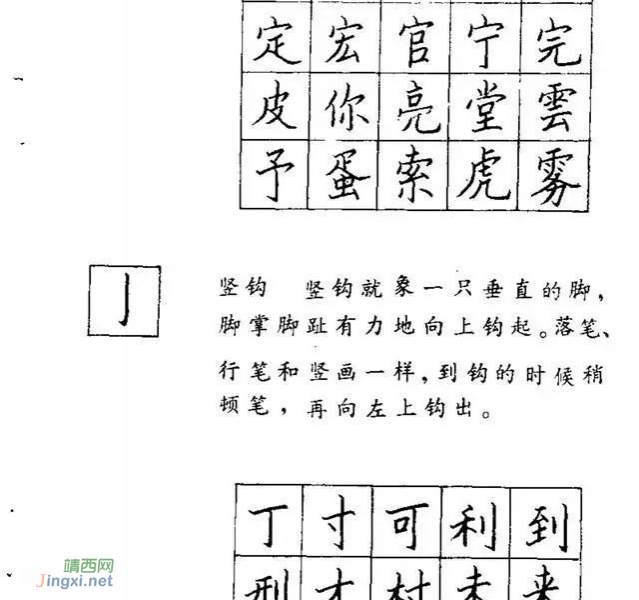 定 宏 官 宁 完
皮 你 亮 堂 雲
予 蛋 索 虎 雾
亅
竖钩 竖钩就象一只垂直的脚，
脚掌脚趾有力地向上钩起。落笔、
行笔和竖画一样，到钩的时候稍
顿笔，再向左上钩出。
丁 寸 可 利 到
刑 才 村 未 来
靖西网
Jingxi.net